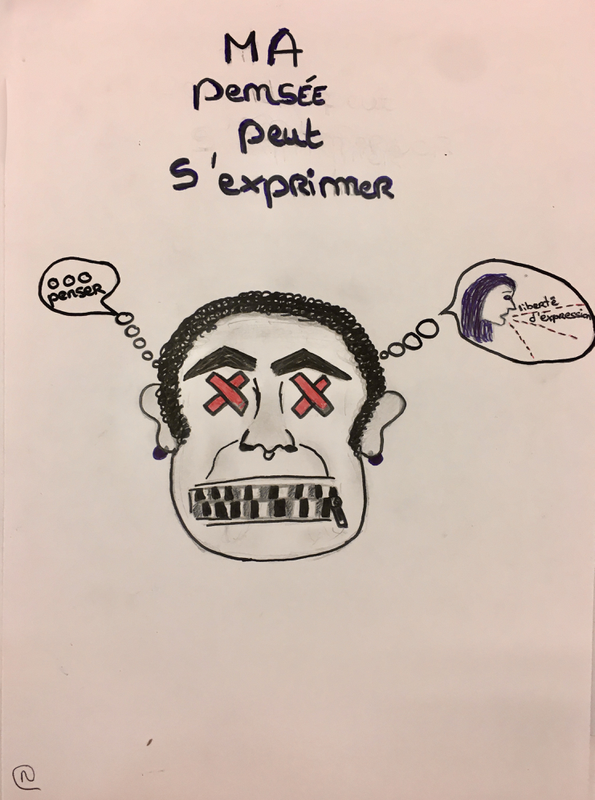 MA
pensée
peut
s'exprimer
penser
liberté
d'éxpression
N